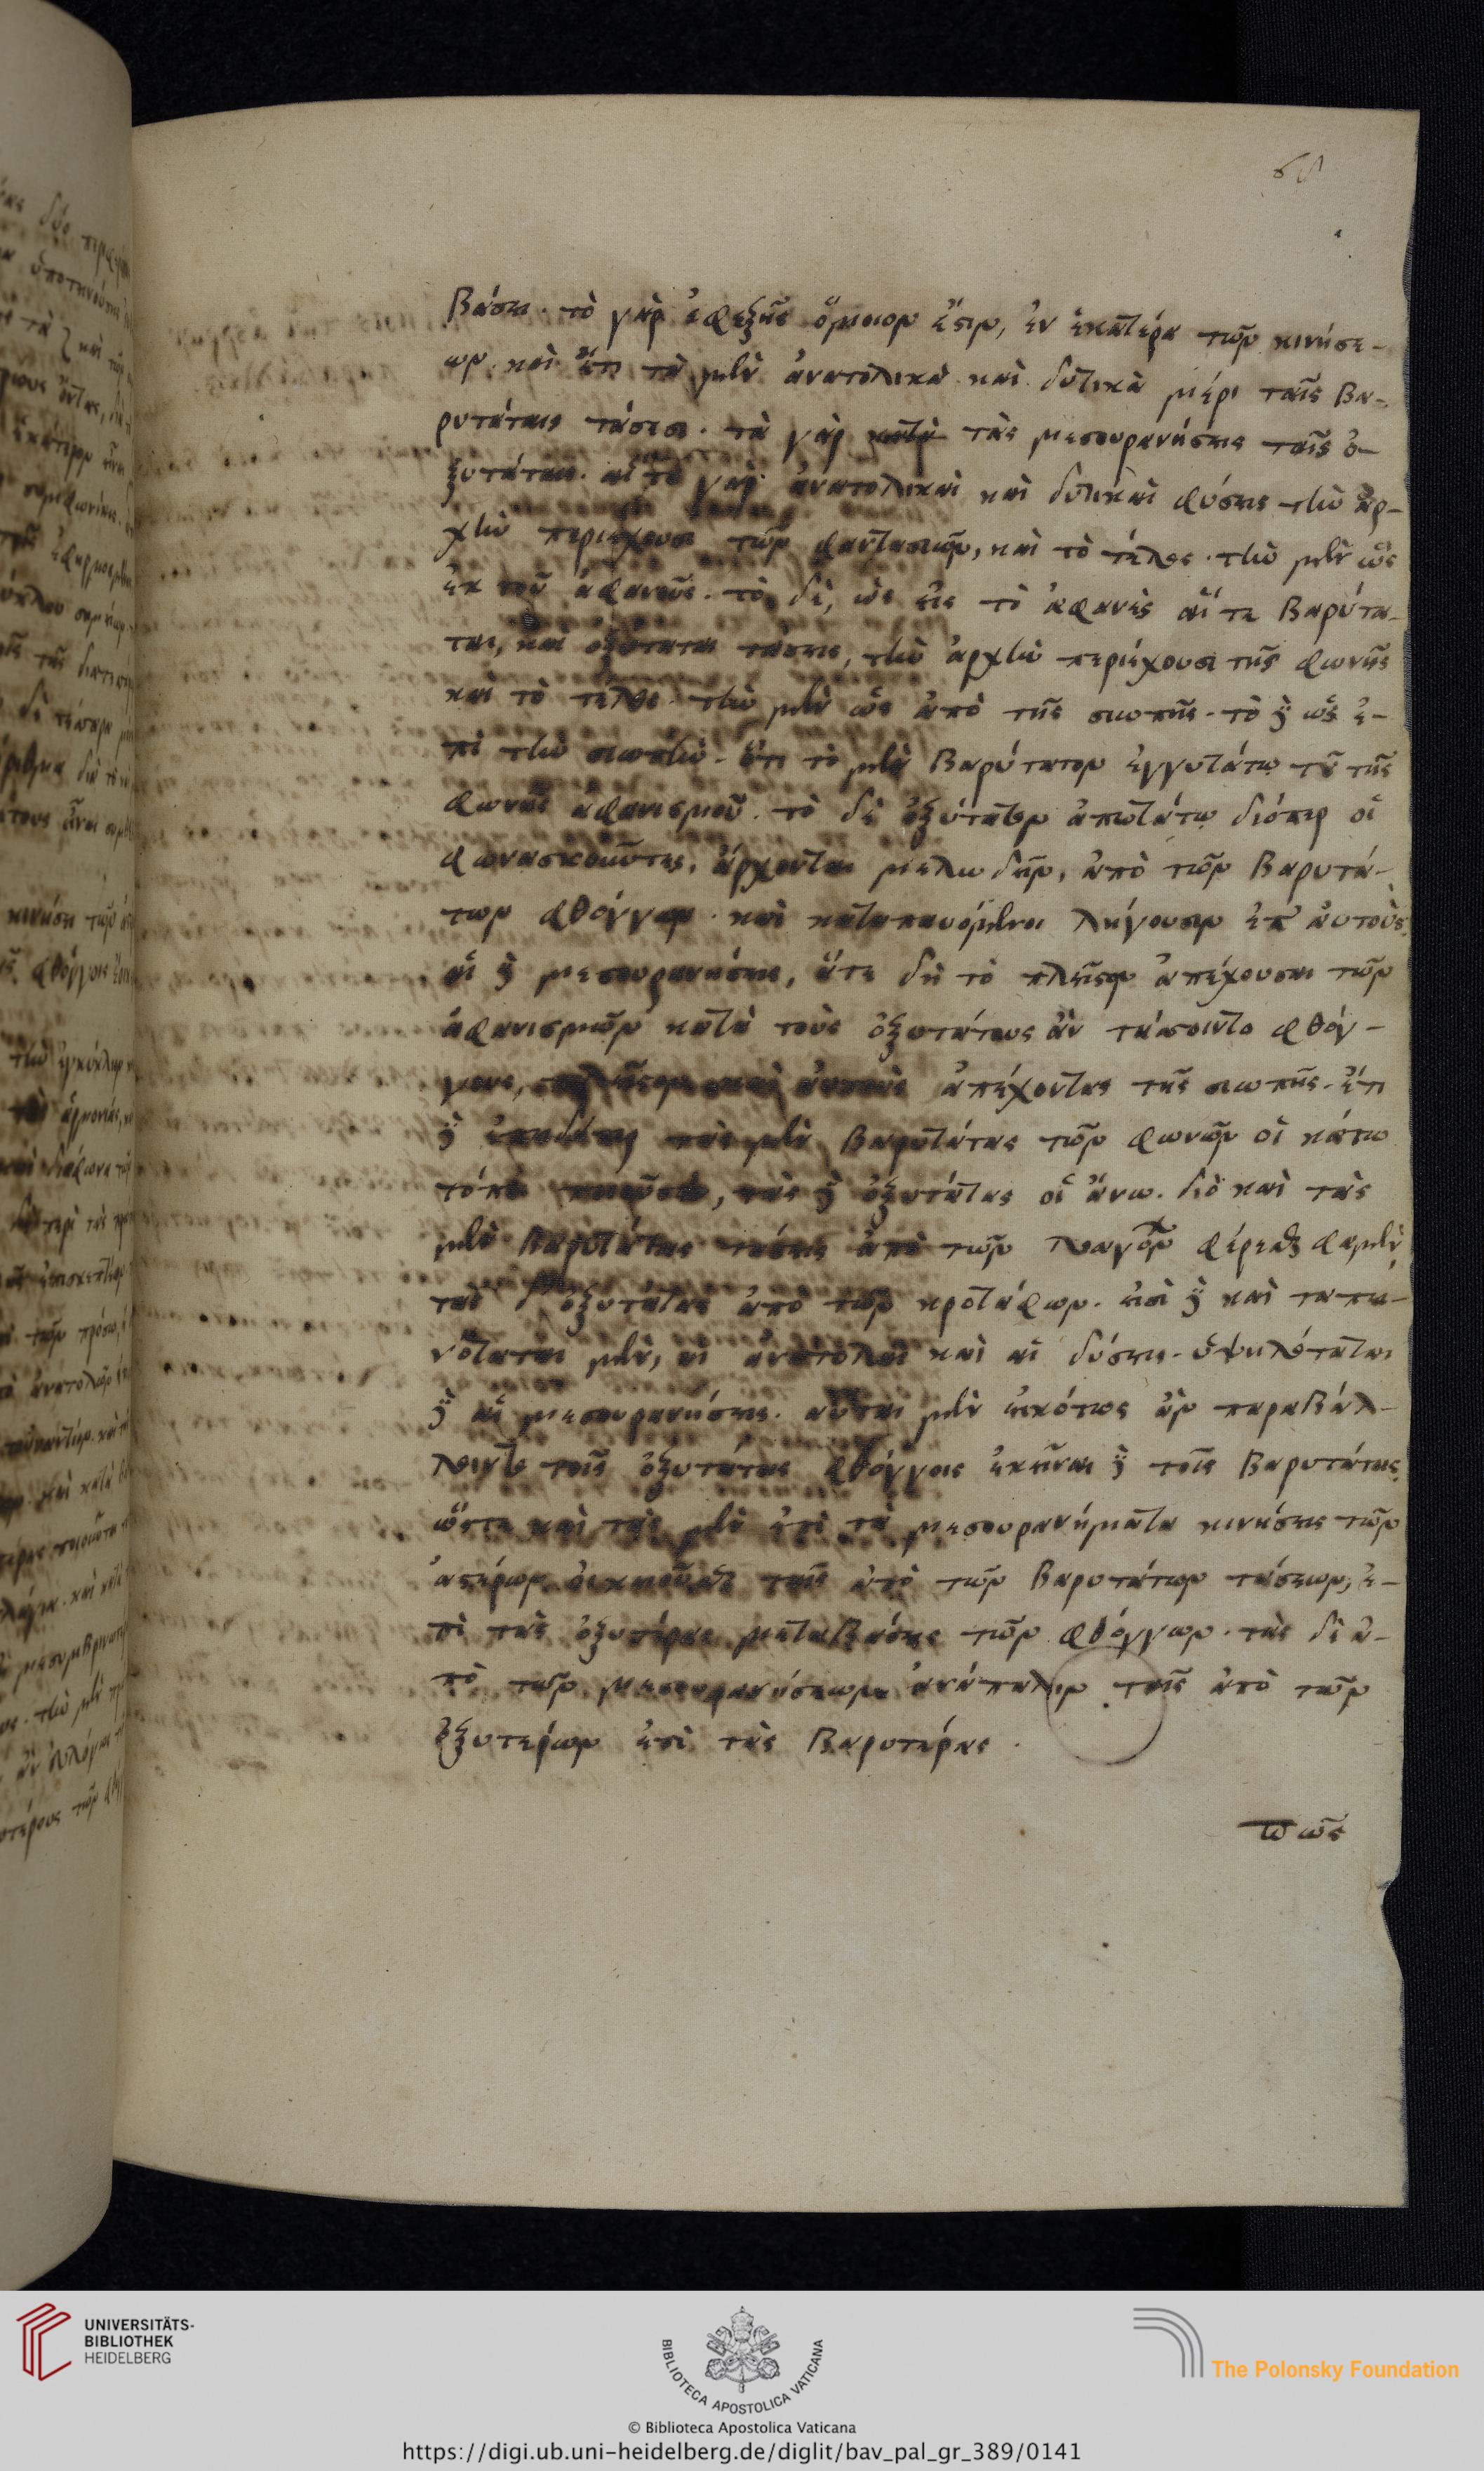 βάσει. τὸ γὰρ ἐφεξῆς ὅμοιον ἔστιν, ἐν ἑκατέρα τῶν κινήσε-
ων. καὶ ἔτι τὰ μὲν ἀνατολικὰ καὶ δυτικὰ μέρι ταῖς βα-
ρυτάταις τάσεσι. τὰ γὰρ κατὰ τὰς μεσουρανήσεις ταῖς ὀ-
ξυτάταις. αἵ τε γὰρ ἀνατολικαὶ καὶ δυτικαὶ φύσεις τὴν ἀρ-
χὴν περιέχουσι τῶν φαντασιῶν, καὶ τὸ τέλος. τὴν μὲν ὡς
ἐκ τοῦ ἀφανοῦς. τὸ δὲ, ὡς εἰς τὸ ἀφανὲς αἵ τε βαρύτα-
ται, καὶ ὀξύταται τάσεις, τὴν ἀρχὴν περιέχουσι τῆς φωνῆς
καὶ τὸ τέλος. τὴν μὲν ὡς ἀπὸ τῆς σιωπῆς. τὸ δὲ ὡς ἐ-
πὶ τὴν σιωπὴν. ὅτι τὸ μὲν βαρύτατον ἐγγυτάτω τοῦ τῆς
φωνῆς ἀφανισμοῦ. τὸ δὲ ὀξύτατον ἀπωτάτω διόπερ οἱ
φωνασκοῦντες, ἄρχονται μελωδεῖν, ἀπὸ τῶν βαρυτά-
των φθόγγων. καὶ καταπαυόμενοι λήγουσιν ἐπ' αὐτοὺς.
αἱ δὲ μεσουρανήσεις, ἅτε δὴ τὸ πλεῖστον ἀπέχουσαι τῶν
ἀφανισμῶν κατὰ τοὺς ὀξυτάτους ἂν τάσοιντο φθόγ-
γους, πλεῖστον καὶ αὐτοὺς ἀπέχοντας τῆς σιωπῆς. ἔτι
δὲ ἐπειδήπερ τὰς μὲν βαρυτάτας τῶν φωνῶν οἱ κάτω
τόποι ποιοῦσιν, τὰς δὲ ὀξυτάτας οἱ ἄνω. διὸ καὶ τὰς
μὲν βαρυτάτας τάσεις ἀπὸ τῶν λαγόνων φέρεσθαι φαμὲν,
τὰς δ' ὀξυτάτας ἀπὸ τῶν κροτάφων. εἰσὶ δὲ καὶ ταπει-
νόταται μὲν, αἱ ἀνατολαὶ καὶ αἱ δύσεις. ὑψηλόταται
δὲ αἱ μεσουρανήσεις. αὗται μὲν εἰκότως ἂν παραβάλ-
λοιντο τοῖς ὀξυτάτοις φθόγγοις ἐκεῖναι δὲ τοῖς βαρυτάτοις.
ὥστε καὶ τὰς μὲν ἐπὶ τὰ μεσουρανήματα κινήσεις τῶν
ἀστέρων οἰκειοῦσθαι ταῖς ἀπὸ τῶν βαρυτάτων τάσεων, ἐ-
πὶ τὰς ὀξυτέρας μεταβάσεις τῶν φθόγγων. τὰς δὲ ἀ-
πὸ τῶν μεσουρανήσεων ἀνάπαλιν ταῖς ἀπὸ τῶν
ὀξυτέρων ἐπὶ τὰς βαρυτέρας.
πῶς
UNIVERSITÄTS-
BIBLIOTHEK
HEIDELBERG
BIBLIOTECA APOSTOLICA VATICANA
The Polonsky Foundation
© Biblioteca Apostolica Vaticana
https://digi.ub.uni-heidelberg.de/diglit/bav_pal_gr_389/0141